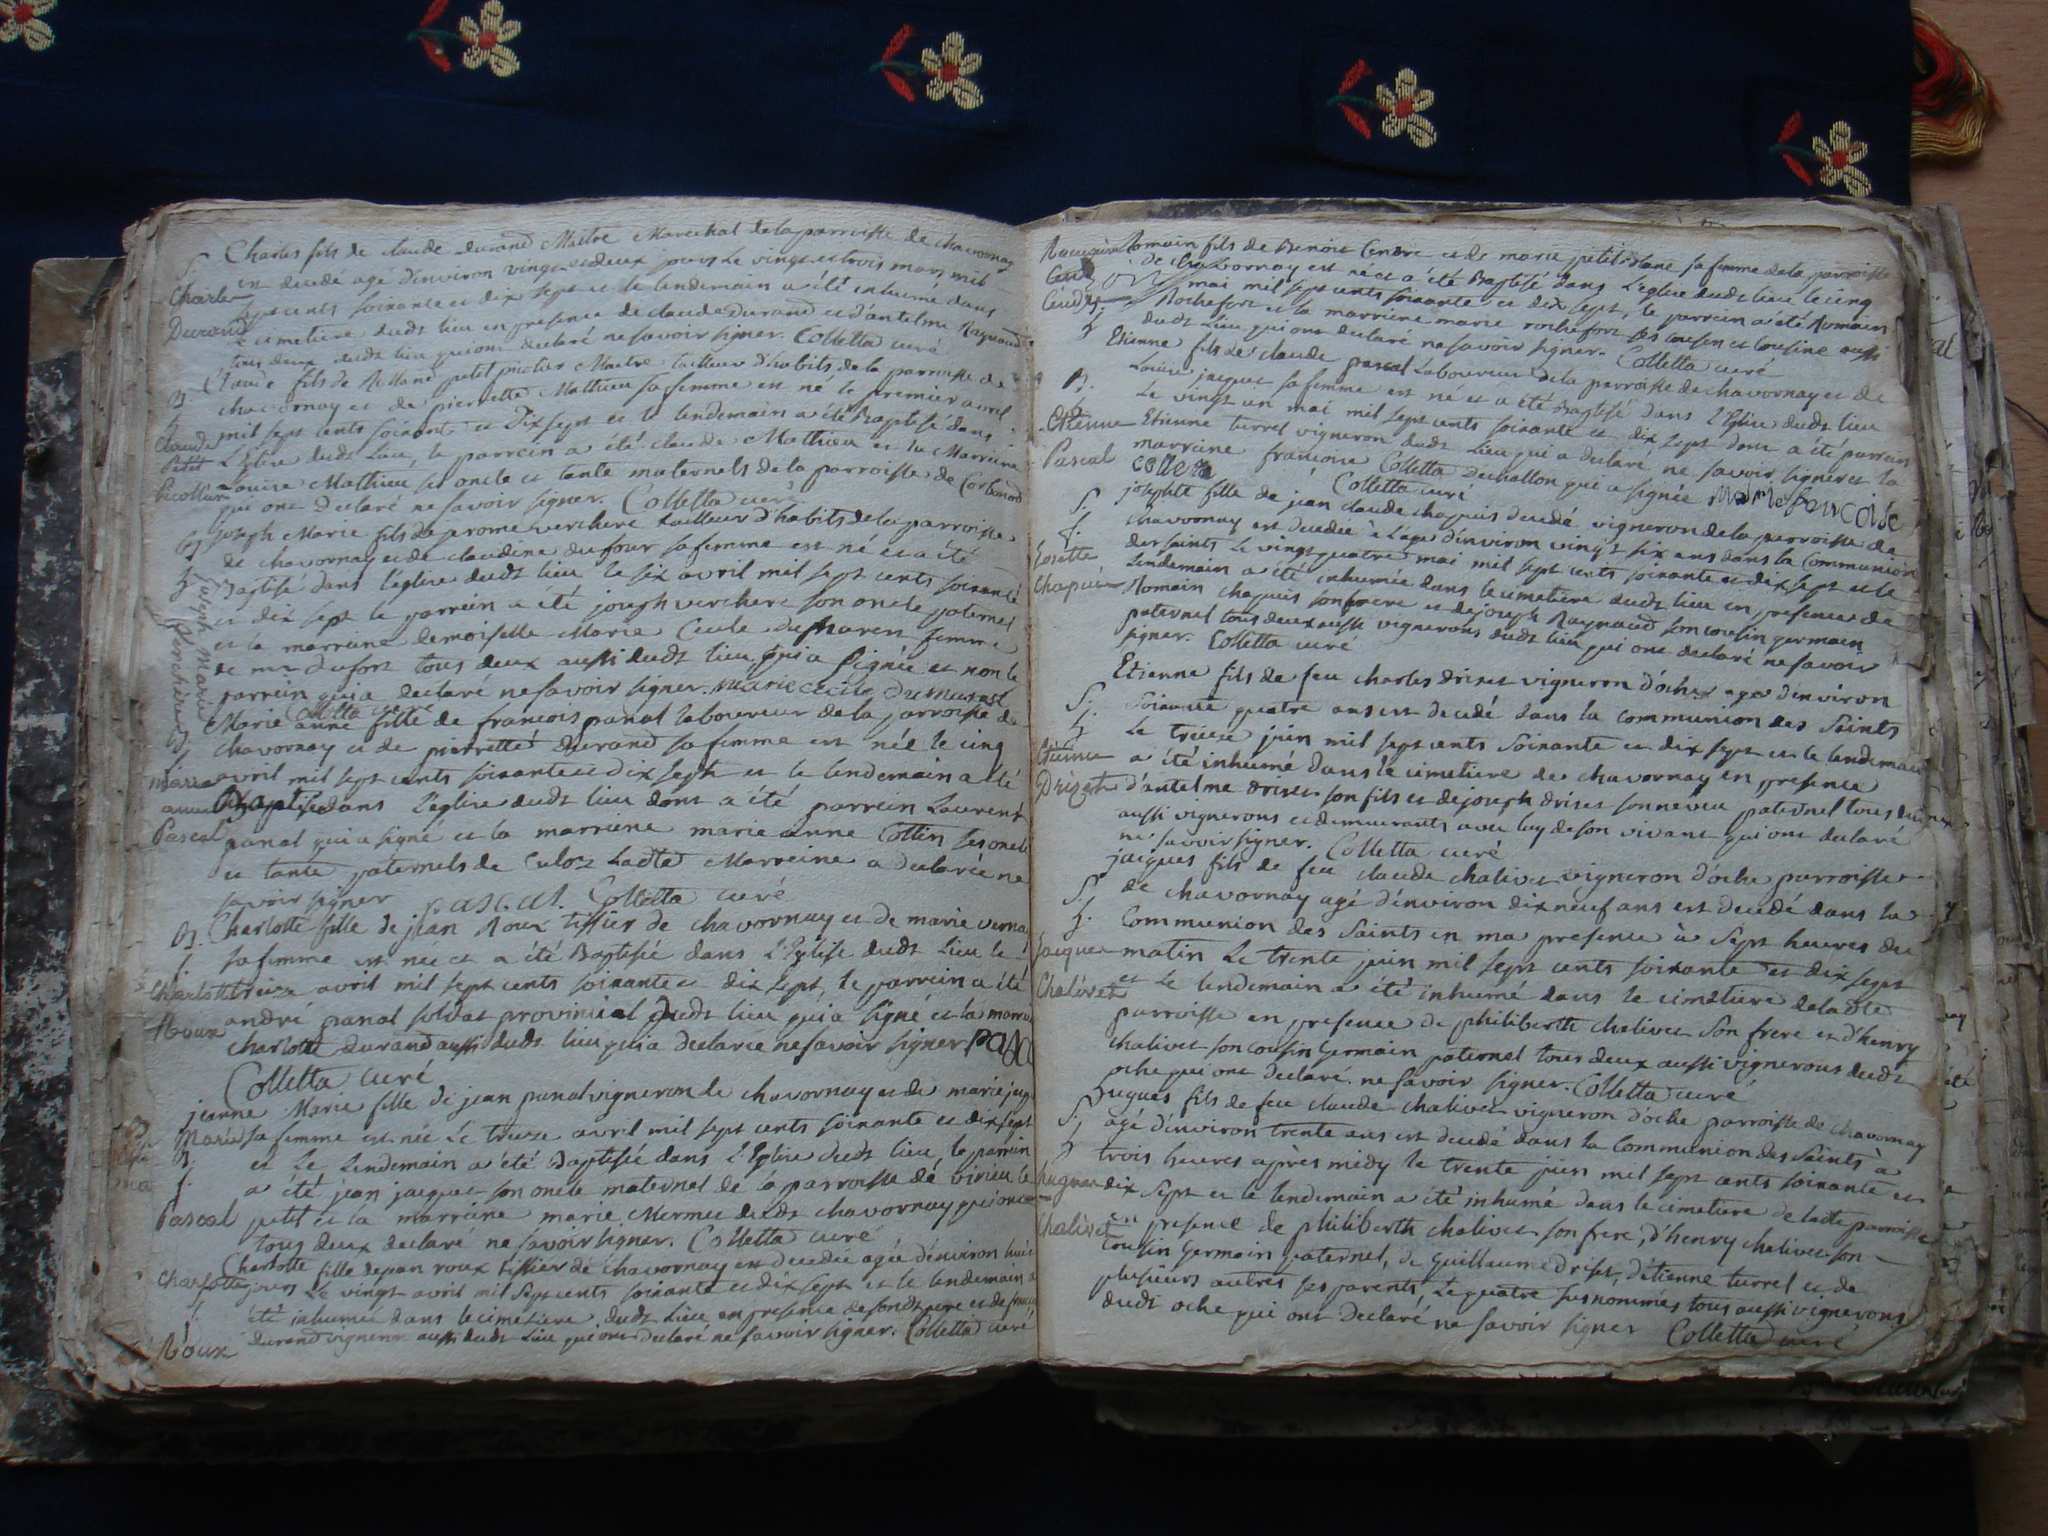 Charles fils de claude durand Maitre Marechal de la parroisse de chavornay
est decedé agé d'environ vingt et deux jours le vingt et trois mars mil
sept cents soixante et dix sept et le lendemain a été inhumé dans
le cimetiere dudt lieu en presence de claude Durand et d'antelme Raynaud
tous deux dudt lieu qui ont declaré ne savoir signer. Colletta curé
S.
Charle
Durand
Claude fils de petit Maitre tailleur d'habits de la parroisse de
chavornay et de pierrette Mathieu sa femme est né le premier avril
mil sept cents soixante et Dix sept et le lendemain a été Baptisé dans
L'Eglise dudt Lieu, le parrein a été claude Mathieu et la Marreine
Louise Mathieu ses oncle et tante maternels de la parroisse de Corbonod
qui ont Declaré ne savoir signer. Colletta curé
B
Claude
Petit
joseph Marie fils de jerome verchere tailleur d'habits de la parroisse
de chavornay et de claudine dufour sa femme est né et a été
Baptisé dans l'eglise dudt lieu le six avril mil sept cents soixante
et dix sept le parrein a été joseph verchere son oncle paternel
et la marreine demoiselle Marie Cecile femme
de mr Dufort tous deux aussi dudt lieu, qui a signée et non le
parrein qui a declaré ne savoir signer. marie cecile
Colletta curé
joseph Marie
verchere
Marie anne fille de francois panal laboureur de la parroisse de
chavornay et de pierrette Durand sa femme est née le cinq
avril mil sept cents soixante et dix sept et le lendemain a été
Baptisée dans l'eglise dudt lieu dont a été parrein Laurent
panal qui a signé et la marreine marie anne Collin ses oncle
et tante paternels de Culoz Ladte Marreine a declarée ne
savoir signer pascal. Colletta curé
marie
anne
Pascal
Charlotte fille de jean Roux tissier de chavornay et de marie verna
sa femme est née et a été Baptisée dans l'Eglise dudt Lieu le
treize avril mil sept cents soixante et dix sept, le parrein a été
andré panal soldat provincial dudt lieu qui a signé et la marreine
charlotte durand aussi dudt lieu qui a declarée ne savoir signer Pasc
Colletta curé
B.
f.
Charlotte
Roux
jeanne Marie fille de jean panal vigneron de chavornay et de marie jaq
sa femme est née Le treize avril mil sept cents soixante et dix sept
et Le Lendemain a été Baptisée dans l'Eglise dudt lieu, le parrein
a été jean jacques son oncle maternel de la parroisse de virieu le
petit et la marreine marie Mermet dudt chavornay qui ont
tous deux declaré ne savoir signer. Colletta curé
Marie
B.
f.
Pascal
Charlotte fille de jean roux tissier de chavornay est decedée agée d'environ huit
jours Le vingt avril mil sept cents soixante et dix sept et le lendemain a
été inhumée dans le cimetiere dudt Lieu en presence de sondt pere et de
durand vigneron aussi dudt Lieu qui ont declaré ne savoir signer. Colletta curé
Charlotte
f.
Roux
Romain fils de Benoit Cendre et de marie petit sa femme de la parroisse
de chavornay est né et a été Baptisé dans L'eglise dudt lieu le cinq
mai mil sept cents soixante et dix sept, le parrein a été Romain
Rochefort et la marreine marie rochefort ses cousin et cousine aussi
dudt Lieu qui ont declaré ne savoir signer. Colletta curé
Etienne fils de claude pascal Laboureur de la parroisse de chavornay et de
Louise jacques sa femme est né et a été Baptisé dans l'Eglise dudt lieu
Le vingt un mai mil sept cents soixante et dix sept dont a été parrein
Etienne turrel vigneron dudt Lieu qui a declaré ne savoir signer et la
marreine francoise Colletta Dechallon qui a signée marie francoise
colleta
Colletta curé
B.
Etienne
Pascal
josephte fille de jean claude chapuis decedé vigneron de la parroisse de
chavornay est decedée à l'age d'environ vingt six ans dans la Communion
des saints Le vingt quatre mai mil sept cents soixante et dix sept et le
Lendemain a été inhumée dans le cimetiere dudt lieu en presence de
Romain chapuis son frere et de joseph Raynaud son cousin germain
paternel tous deux aussi vignerons dudt lieu qui ont declaré ne savoir
signer. Colletta curé
S.
f.
Josette
Chapuis
Etienne fils de feu charles drizet vigneron d'oche agé d'environ
soixante quatre ans est decedé dans la communion des Saints
Le treize juin mil sept cents soixante et dix sept et le lendemain
a été inhumé dans le cimetiere de chavornay en presence
d'antelme drizet son fils et de joseph drizet son neveu paternel tous deux
aussi vignerons et demeurants avec luy de son vivant qui ont declaré
ne savoir signer. Colletta curé
S.
Etienne
Drizet
jacques fils de feu claude chalivet vigneron d'oche parroisse
de chavornay agé d'environ dix neuf ans est decedé dans la
Communion des Saints en ma presence à sept heures du
matin Le trente juin mil sept cents soixante et dix sept
et Le lendemain a été inhumé dans le cimetiere de ladte
parroisse en presence de philiberth chalivet son frere et d'henry
chalivet son cousin germain paternel tous deux aussi vignerons dudt
oche qui ont declaré ne savoir signer. Colletta curé
S.
Jacque
Chalivet
Hugues fils de feu claude chalivet vigneron d'oche parroisse de chavornay
agé d'environ trente ans est decedé dans la Communion des Saints à
trois heures après midy le trente juin mil sept cents soixante et
dix sept et le lendemain a été inhumé dans le cimetiere de ladte parroisse
en presence de philiberth chalivet son frere, d'henry chalivet son
cousin germain paternel, de Guillaume drizet, d'etienne turrel et de
plusieurs autres ses parents, Le quatre susnommés tous aussi vignerons
dudt oche qui ont Declaré ne savoir signer Colletta curé
S.
hugue
Chalivet